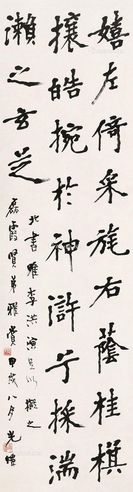 嬉左倚采旄右蔭桂旗
攘皓捥於神滸兮採湍
瀨之玄芝
北書唯李洪演足以擬之
磊霞賢弟雅賞 甲戌八月 光煒